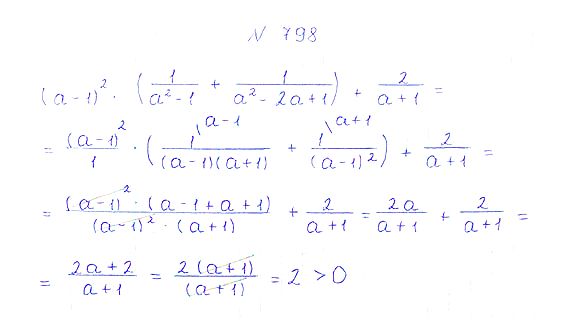 N 798
(a-1)² · (1/(a²-1) + 1/(a²-2a+1)) + 2/(a+1) =
= (a-1)²/1 · (1\a-1/((a-1)(a+1)) + 1\a+1/((a-1)²)) + 2/(a+1) =
= ((a-1)² · (a-1+a+1))/((a-1)² · (a+1)) + 2/(a+1) = 2a/(a+1) + 2/(a+1) =
= (2a+2)/(a+1) = (2(a+1))/((a+1)) = 2 > 0